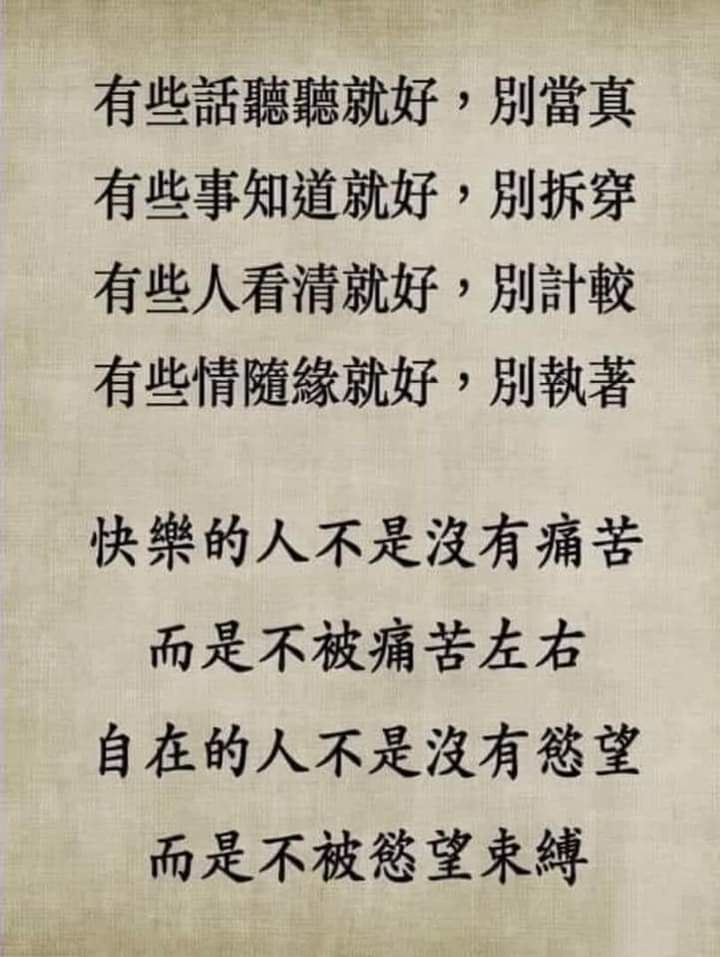 有些話聽聽就好，別當真
有些事知道就好，別拆穿
有些人看清就好，別計較
有些情隨緣就好，別執著
快樂的人不是沒有痛苦
而是不被痛苦左右
自在的人不是沒有慾望
而是不被慾望束縛